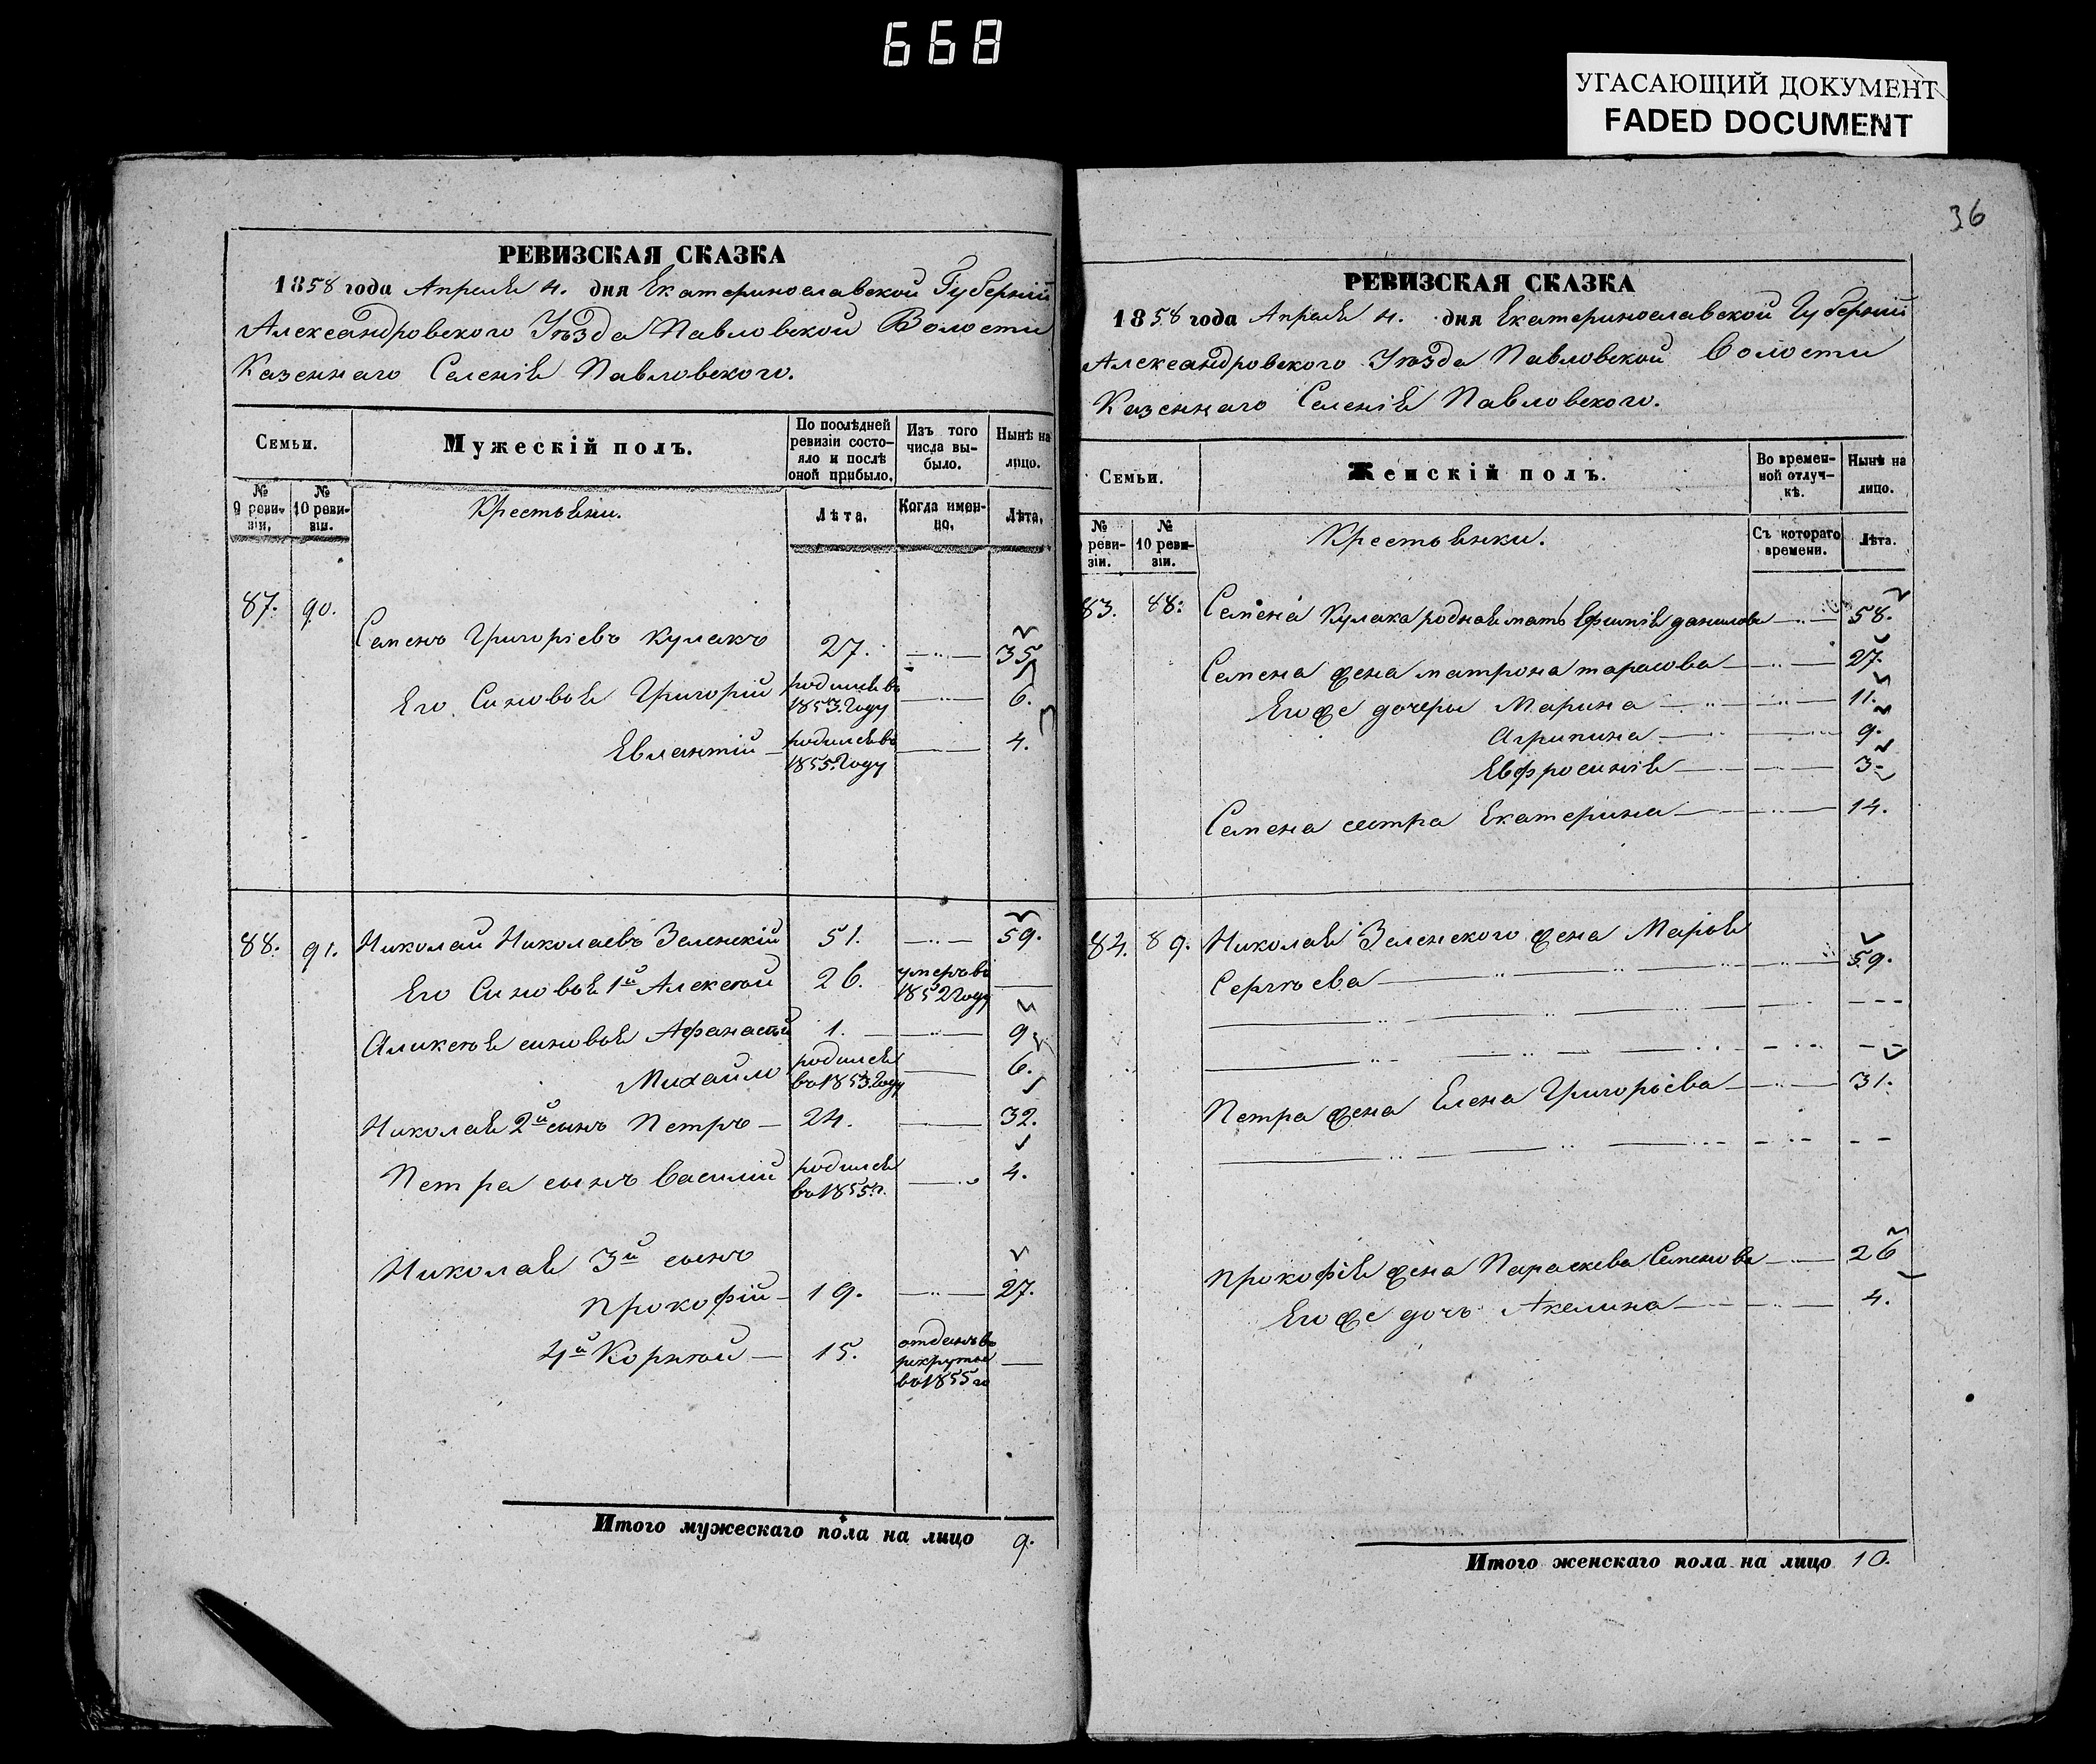 668
УГАСАЮЩИЙ ДОКУМЕНТ
FADED DOCUMENT
РЕВИЗСКАЯ СКАЗКА
1858 года Апреля 4. дня Екатеринославской Губерніи
Александровского Уѣзда Павловской Волости
Казеннаго Селенія Павловского.
Семьи.
Мужескій полъ.
По послѣдней ревизіи состояло и послѣ оной прибыло.
Изъ того числа выбыло.
Нынѣ на лицо.
№ 9 ревизіи.
№ 10 ревизіи.
Крестьяни.
Лѣта.
Когда именно.
Лѣта.
87. 90.
Семенъ Григоріевъ Кулакъ 27. 35
Его Синовья Григорій родился въ 1853. Году 6.
Евлантій родился въ 1855. Году 4.
88. 91. Николай Николаевъ Зеленскій 51. 59.
Его Синовья 1й Алексѣй 26. умеръ въ 1852 Году
Аликсѣя синовья Афанасій 1. 9.
Михайло родился въ 1853. Году 6.
Николая 2й сынъ Петръ 24. 32.
Петра сынъ Василій родился въ 1855. г. 4.
Николая 3й сынъ
Прокофій 19. 27.
4й Корнѣй 15. отданъ в рекруты въ 1855 го
Итого мужескаго пола на лицо 9.
36
РЕВИЗСКАЯ СКАЗКА
1858 года Апреля 4. дня Екатеринославской Губерніи
Александровского Уѣзда Павловской Волости
Казеннаго Селенія Павловского.
Семьи.
Женскій полъ.
Во временной отлучкѣ.
Нынѣ на лицо.
№ ревизіи.
№ 10 ревизіи.
Крестьянки.
Съ котораго времени.
Лѣта.
83. 88. Семена Кулака родная мать Ефимія данилова 58.
Семена жена матрона тарасова 27.
Его же дочеры Марина 11.
Агрипина 9.
Евфросинія 3
Семена сестра Екатерина 14.
84. 89. Николая Зеленского жена Марья
Сергѣева 59.
Петра жена Елена Григорьева 31.
Прокофія жена Параскева Семенова 26
Его же дочь Акелина 4.
Итого женскаго пола на лицо 10.